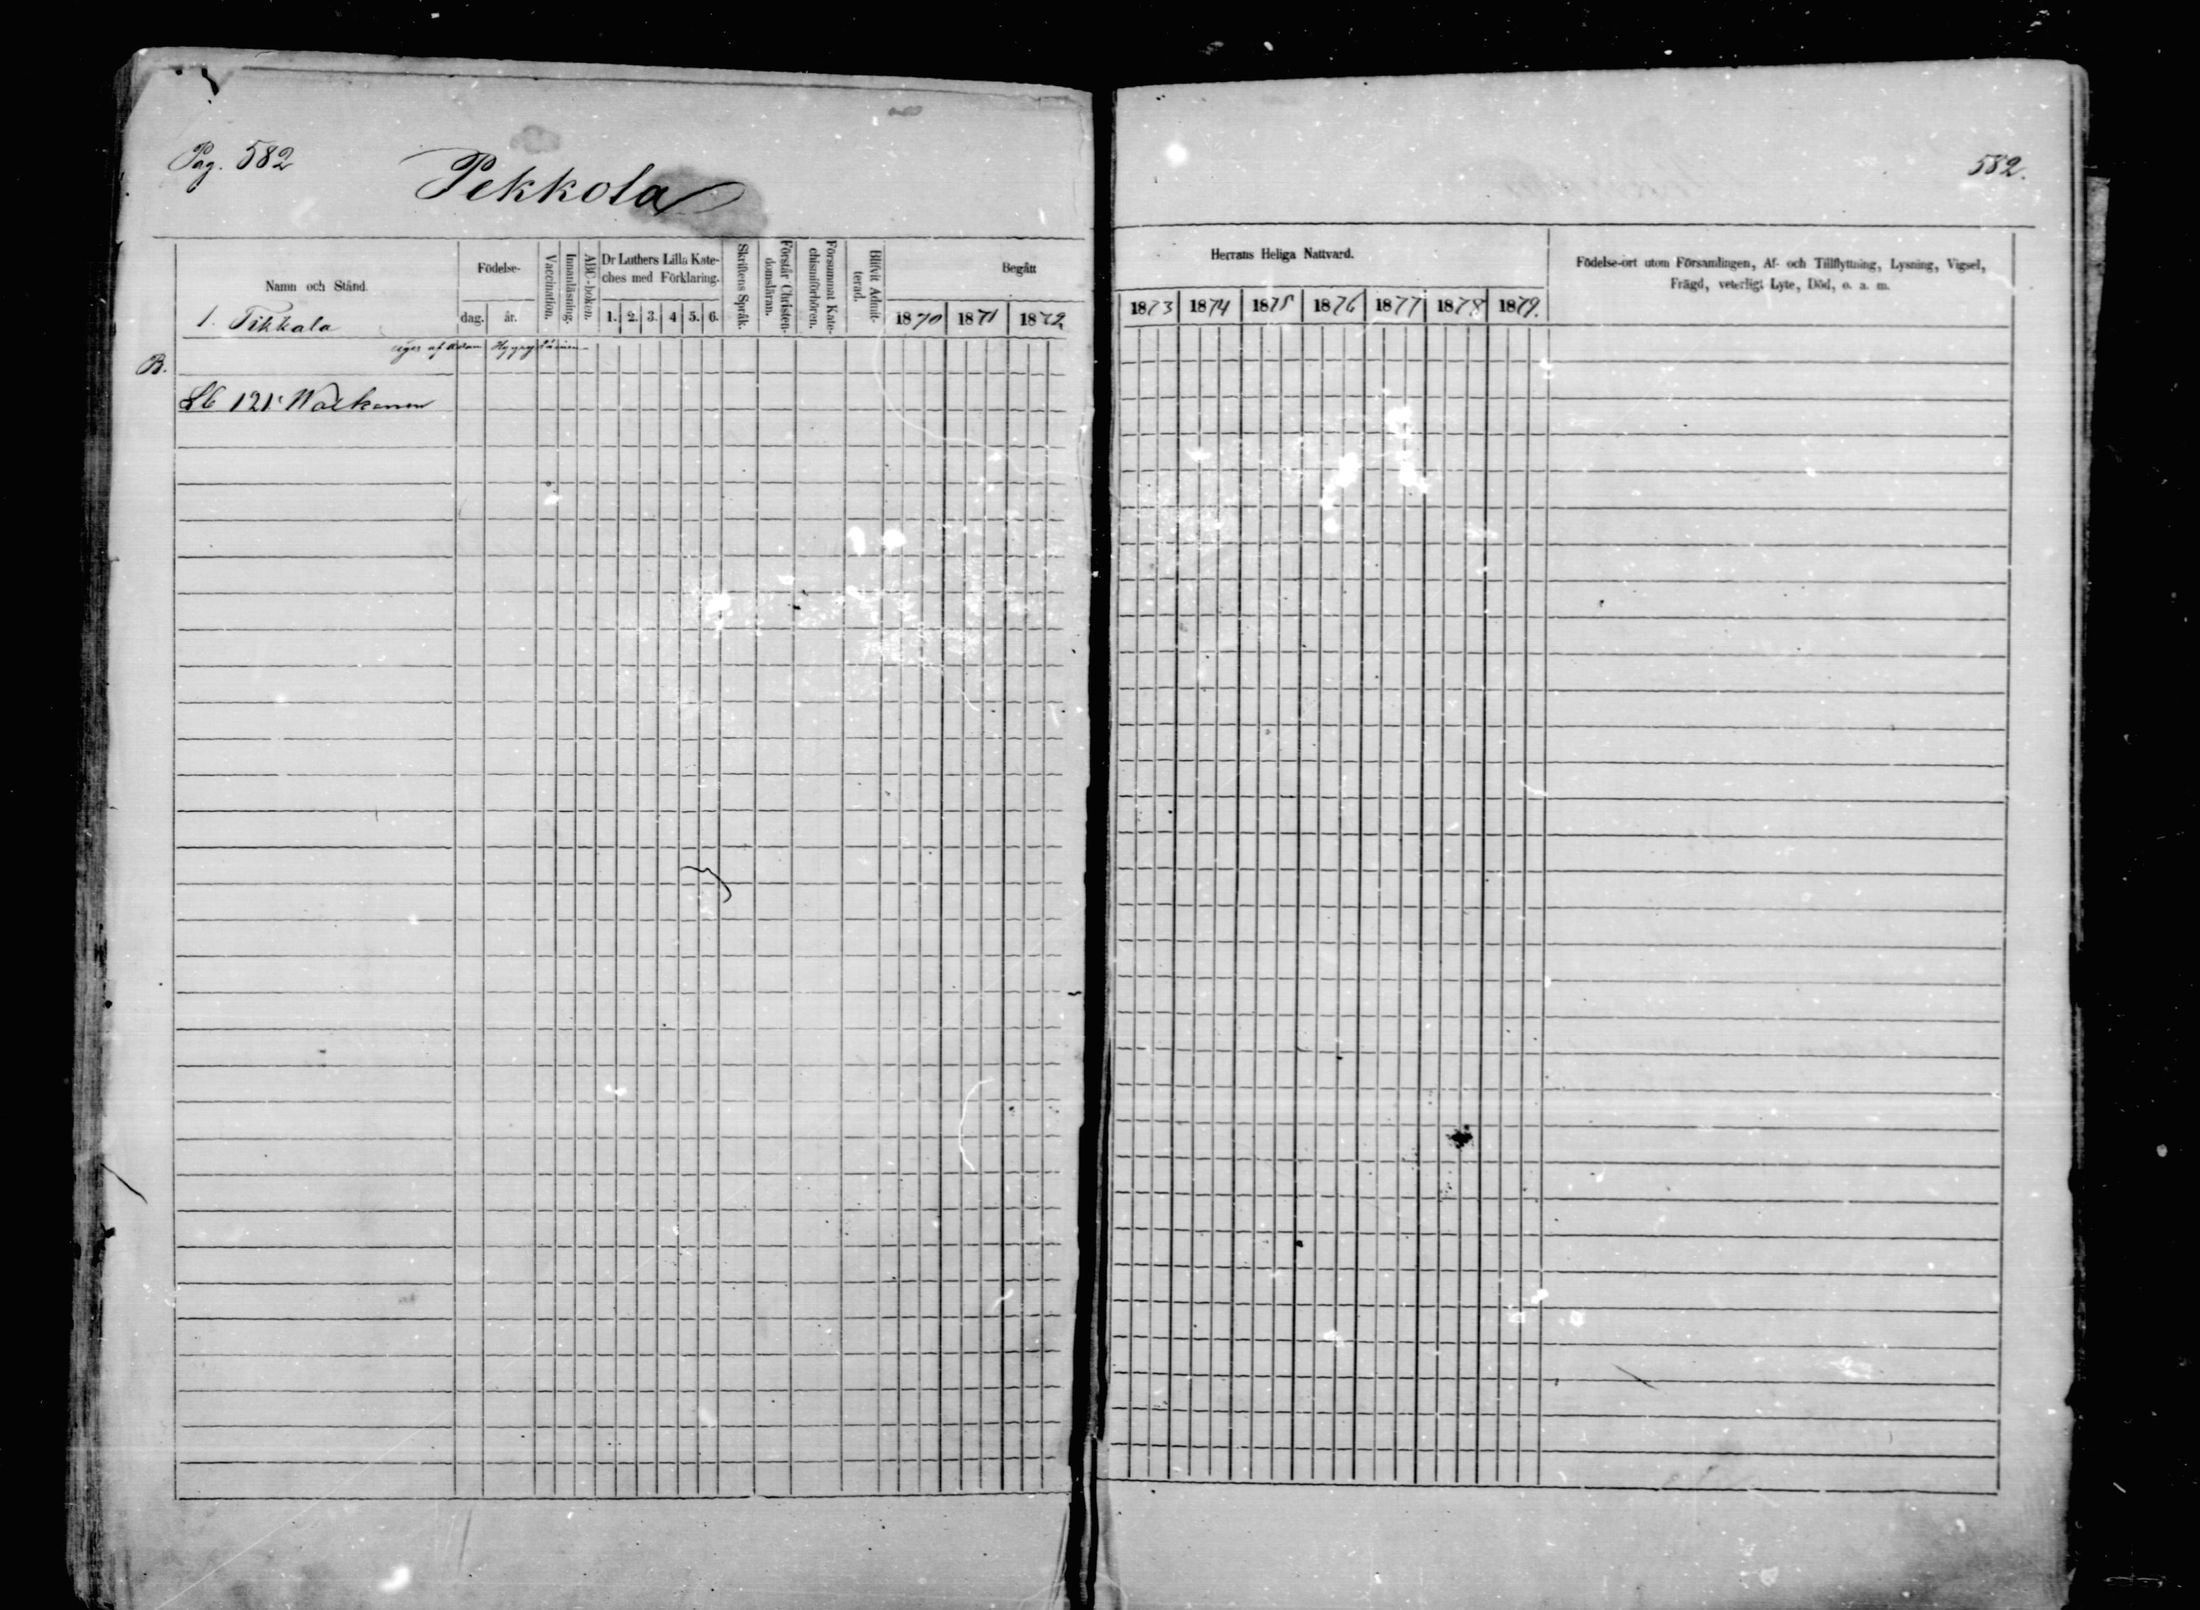 Pag. 582
Pekkola
582.
Namn och Stånd.
Födelse-
dag.
år.
Vaccination.
Innanläsning.
ABC-boken.
Dr Luthers Lilla Kate-
ches med Förklaring.
1. 2. 3. 4 5. 6.
Skriftens Språk.
Förstår Christen-
domsläran.
Försummat Kate-
chismiförhören.
Blifvit Admit-
terad.
Begått
1870 1871 1872
Herrans Heliga Nattvard.
1873 1874 1875 1876 1877 1878 1879.
Födelse-ort utom Församlingen, Af- och Tillflyttning, Lysning, Vigsel,
Frägd, veterligt Lyte, Död, o. a. m.
1. Tikkala
äges af Adam
B.
121